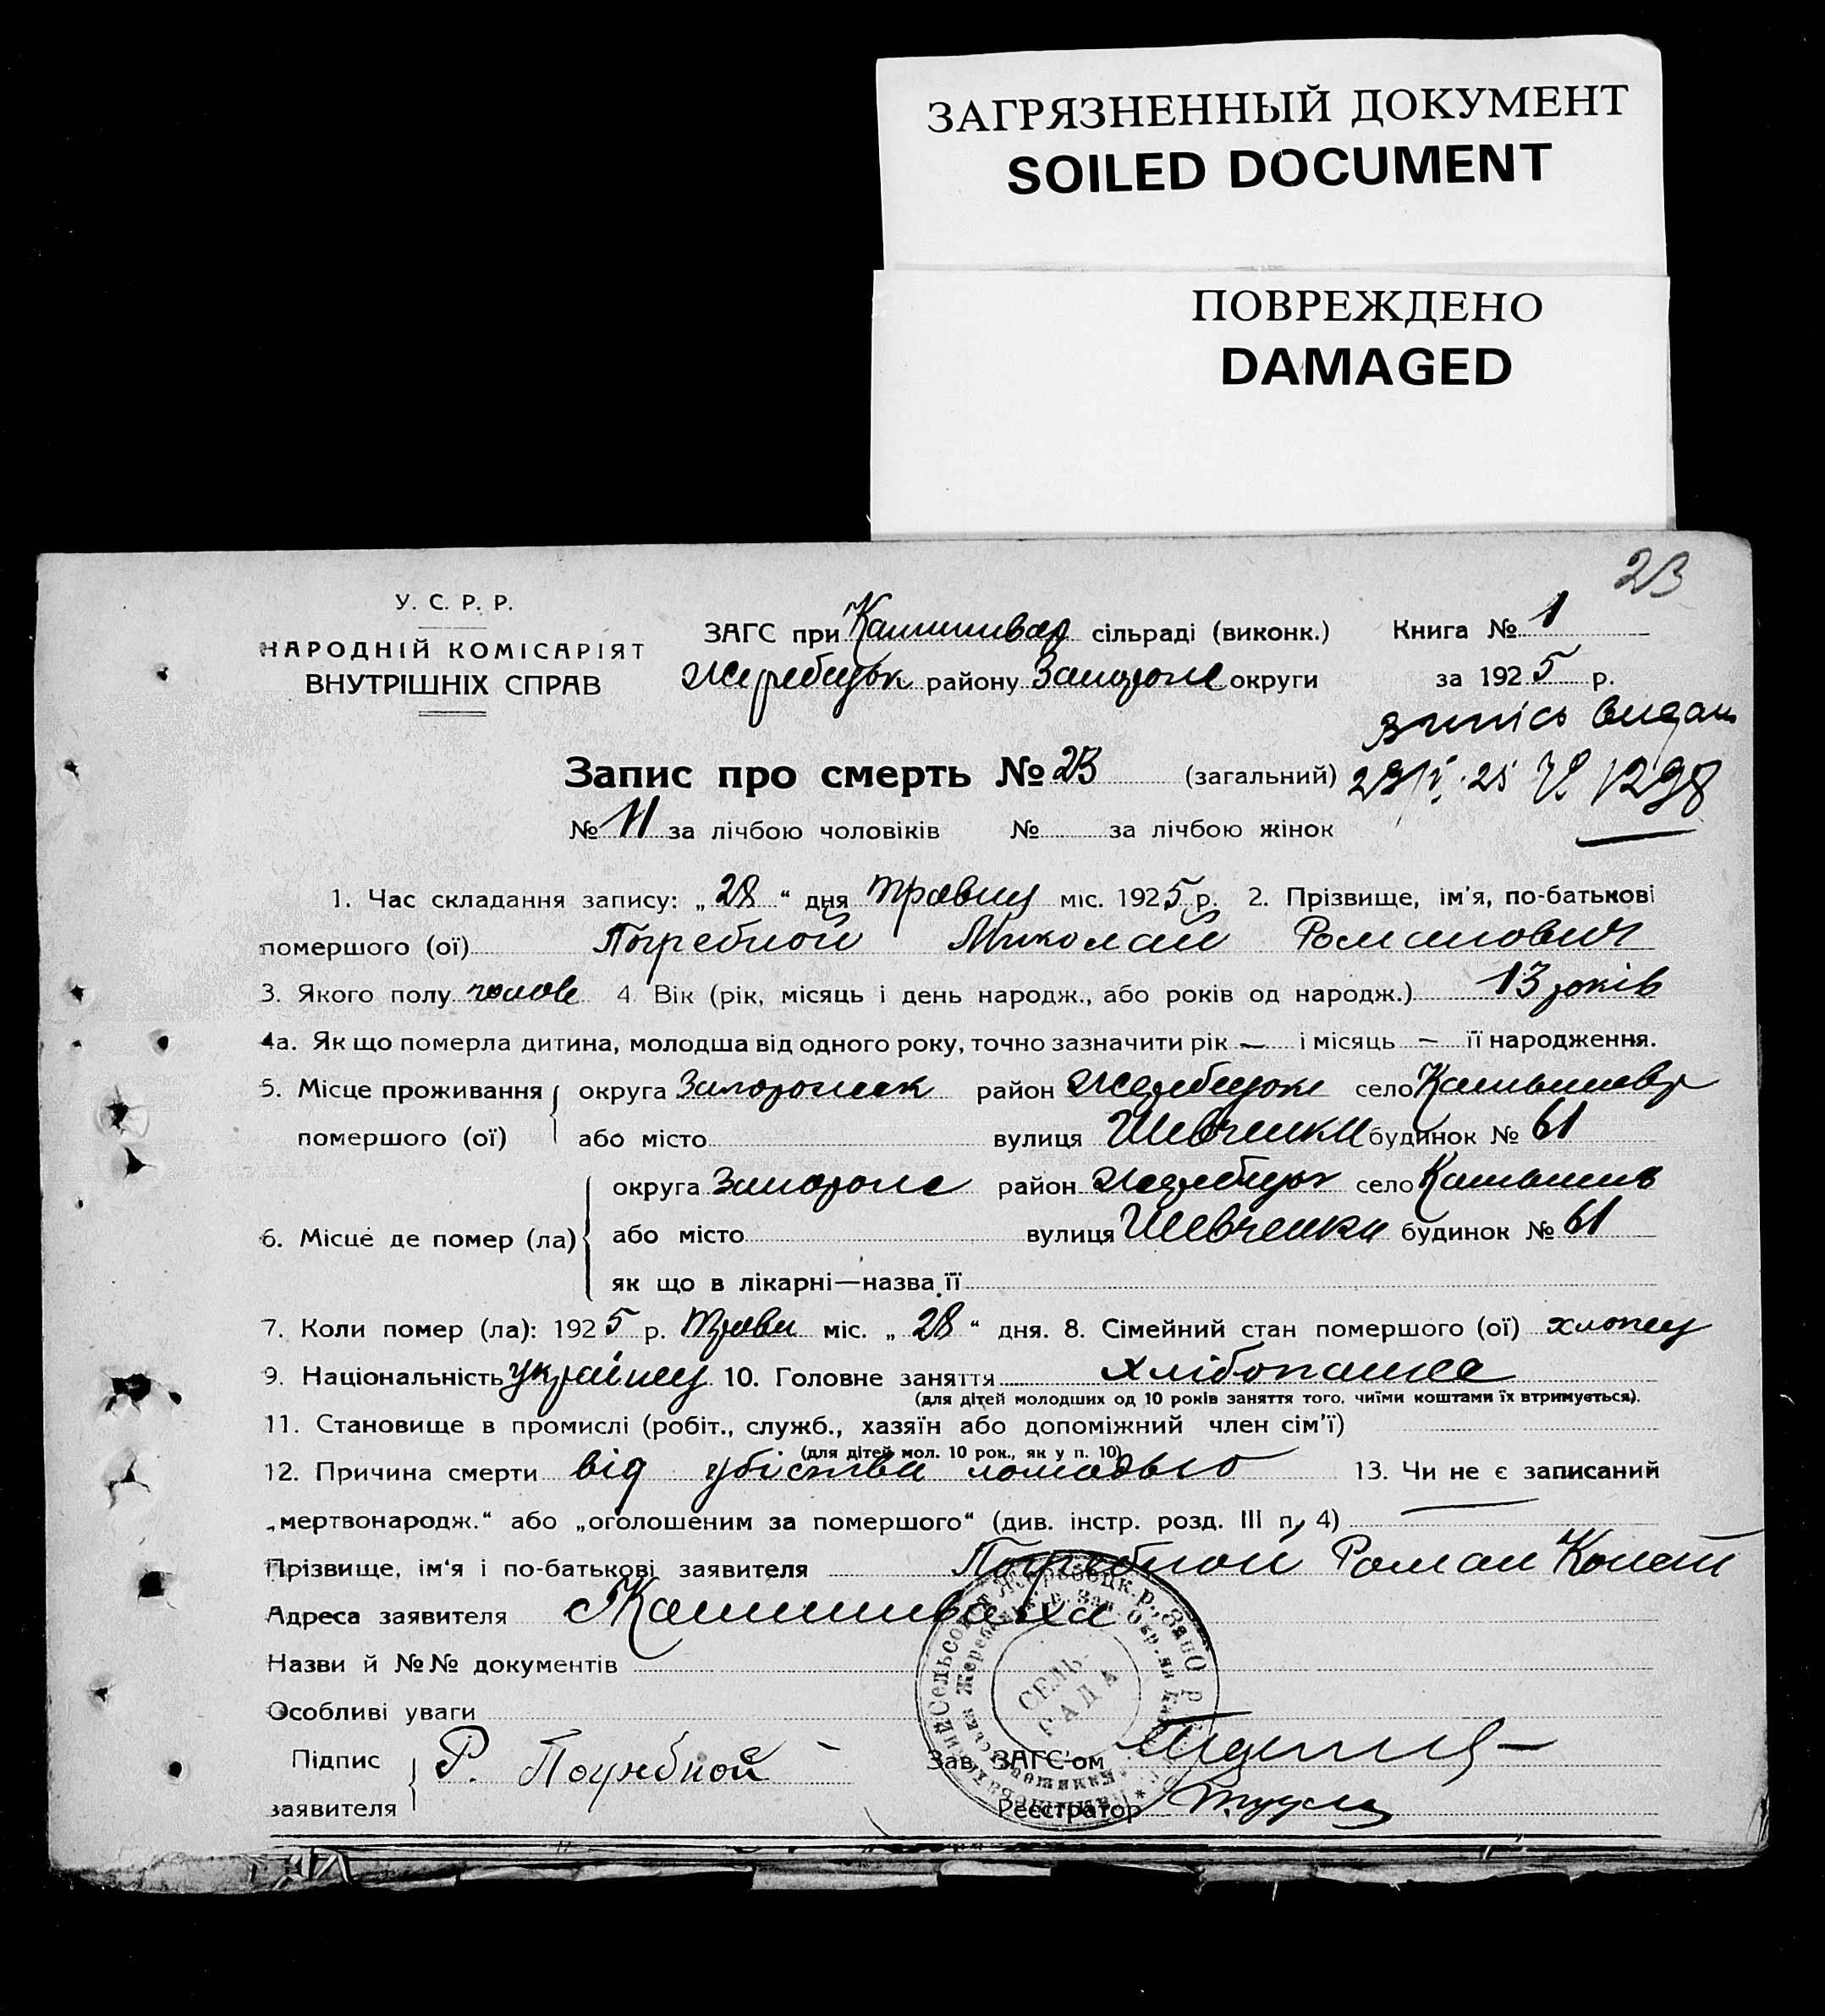 ЗАГРЯЗНЕННЫЙ ДОКУМЕНТ
SOILED DOCUMENT
ПОВРЕЖДЕНО
DAMAGED
23
У. С. Р. Р.
НАРОДНІЙ КОМІСАРІЯТ
ВНУТРІШНІХ СПРАВ
ЗАГС при Камишивах сільраді (виконк.) Книга № 1
Жеребецьк району Запорож округи за 1925 р.
видан
Запис про смерть № 23 (загальний) 29/V 25 1298
№ 11 за лічбою чоловіків № за лічбою жінок
1. Час складання запису: „28“ дня травня міс. 1925 р. 2. Прізвище, ім'я, по-батькові
помершого (ої) Погребной Миколай Романович
3. Якого полу чолове 4. Вік (рік, місяць і день народж., або років од народж.) 13 років
4а. Як що померла дитина, молодша від одного року, точно зазначити рік — і місяць — її народження.
5. Місце проживання округа Запорожск район Жеребецьк село
помершого (ої) або місто вулиця Шевченки будинок № 61
округа Запорож район Жеребецьк село
6. Місце де помер (ла) або місто вулиця Шевченки будинок № 61
як що в лікарні—назва її
7. Коли помер (ла): 1925 р. Трави міс. „28“ дня. 8. Сімейний стан помершого (ої) хлопец
9. Національність українец 10. Головне заняття хлібопашес
(для дітей молодших од 10 років заняття того, чиїми коштами їх втримується).
11. Становище в промислі (робіт., служб., хазяїн або допоміжний член сім'ї)
(для дітей мол. 10 рок., як у п. 10)
12. Причина смерти від убіства лошадью 13. Чи не є записаний
„мертвонародж.“ або „оголошеним за помершого“ (див. інстр. розд. III п. 4)
Прізвище, ім'я і по-батькові заявителя Погребной Роман
Адреса заявителя Камишиваха
Назви й №№ документів
Особливі уваги
Підпис
заявителя Р. Погребной
СЕЛЬ-
РАДА
Зав. ЗАГС'ом
Реєстратор